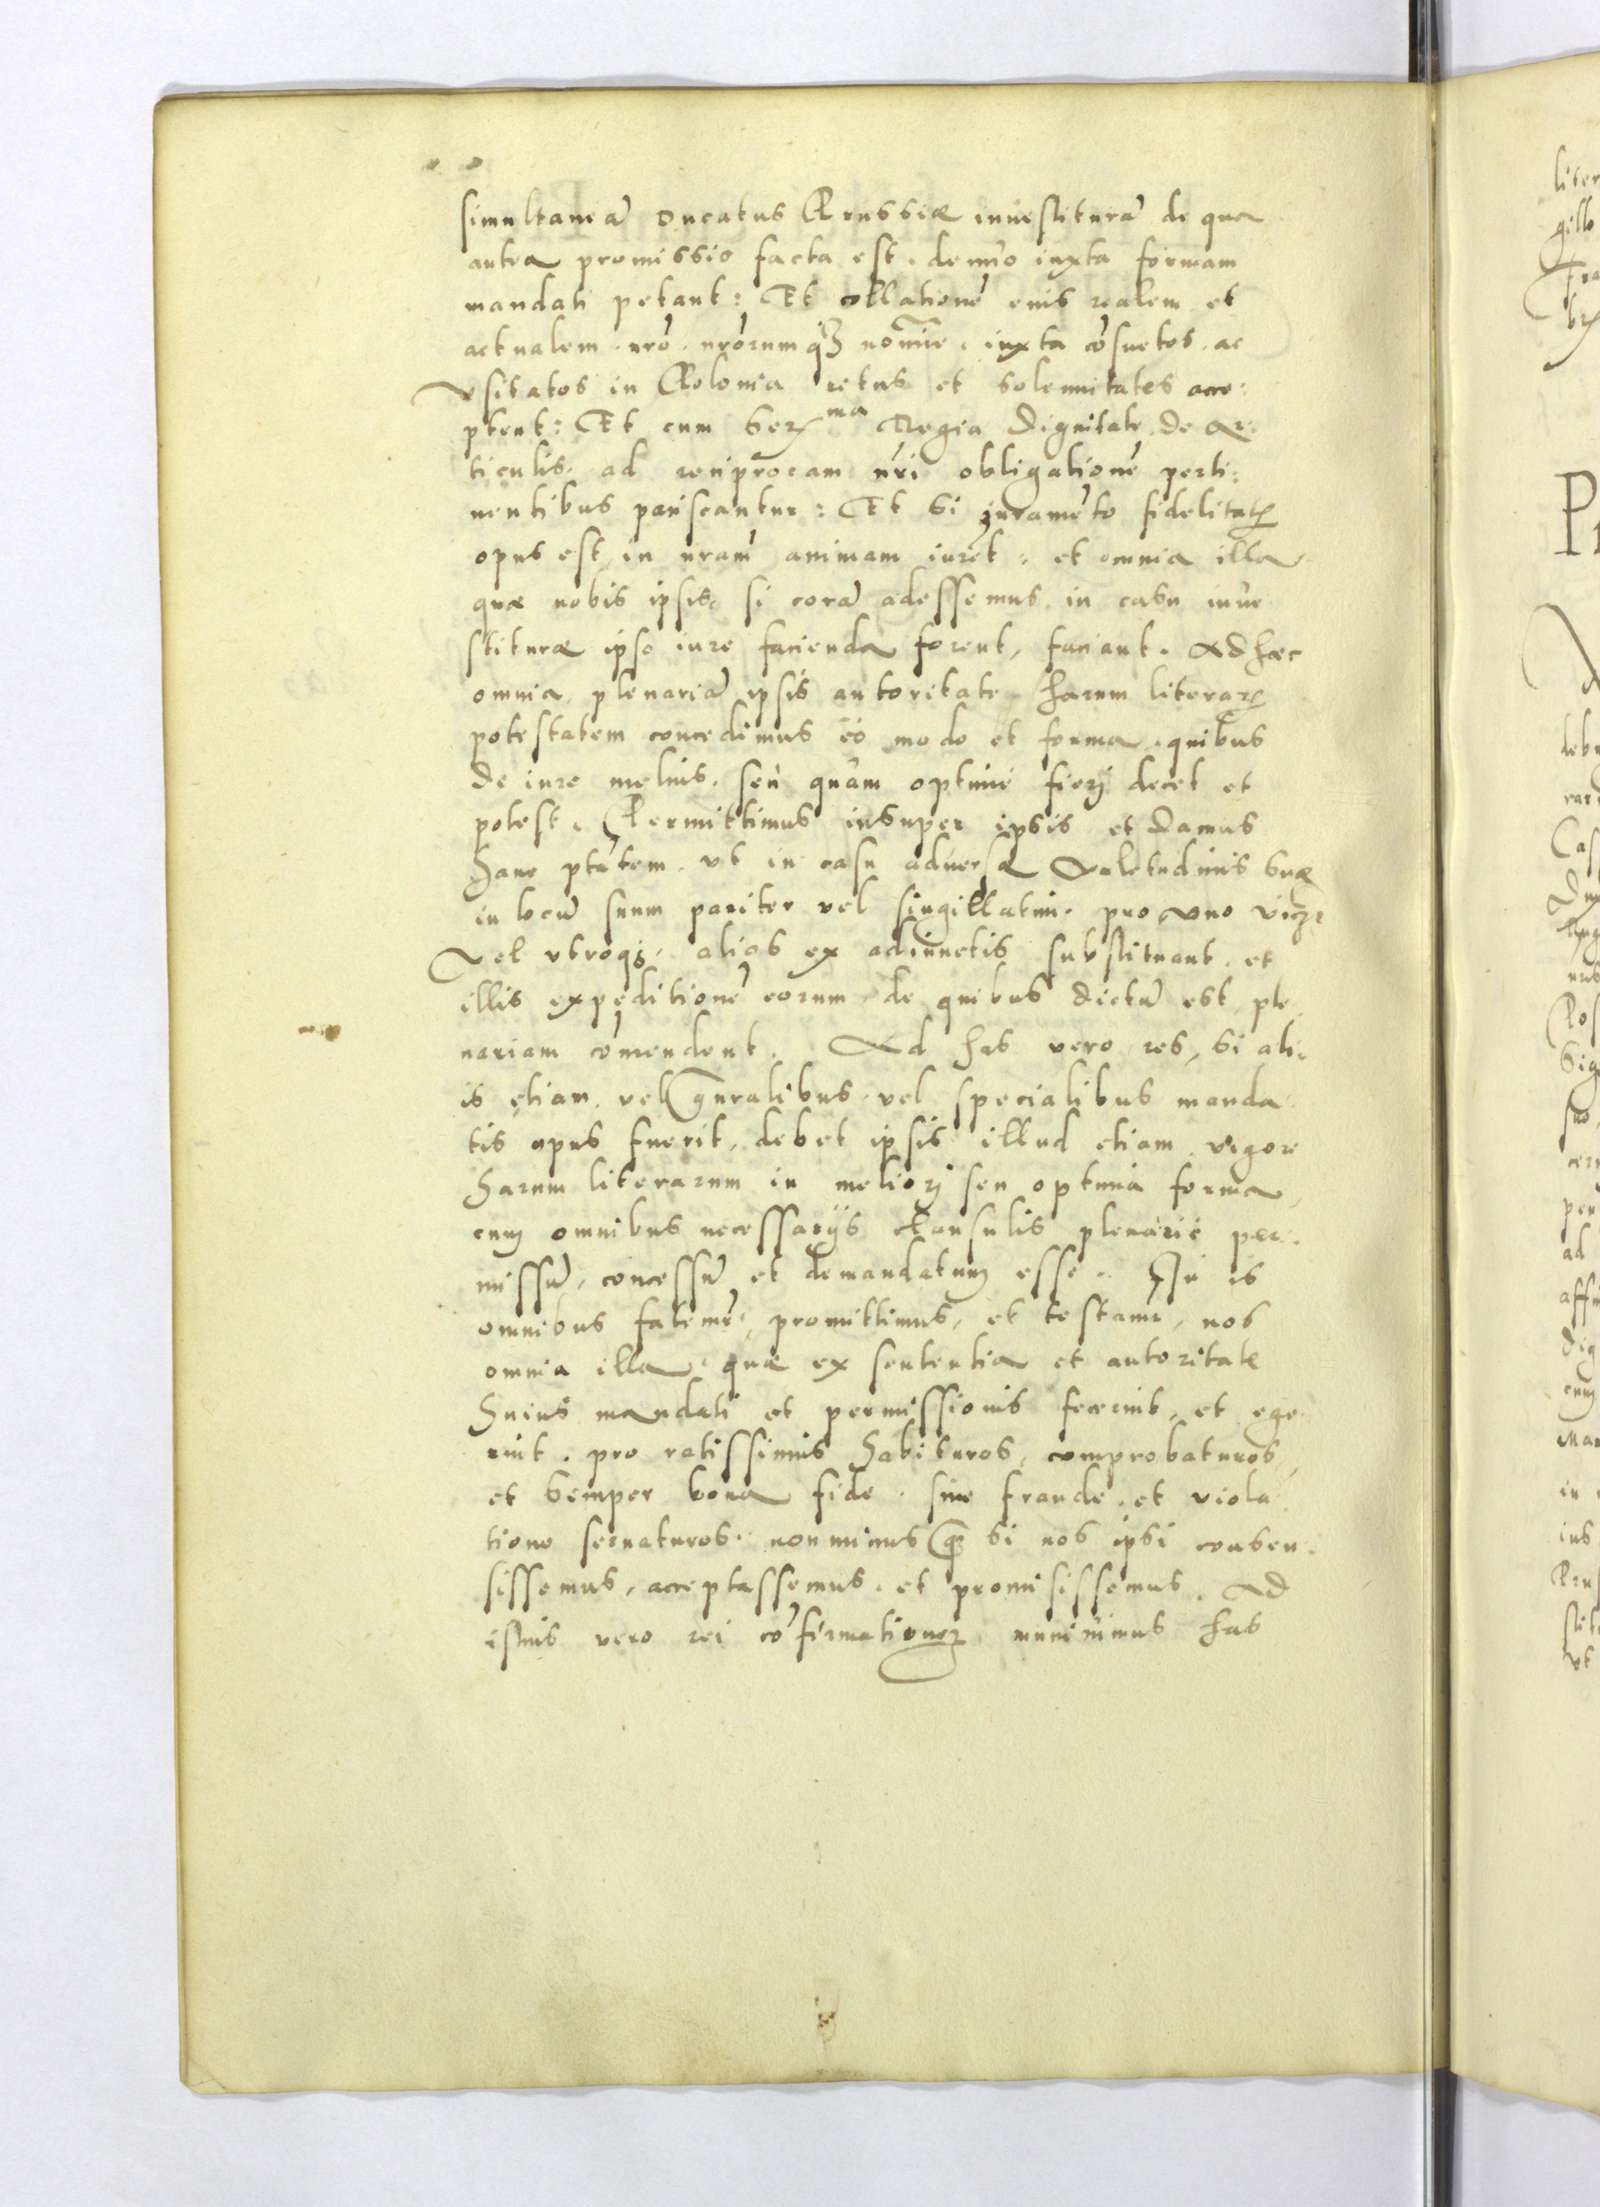 simultaneā Ducatus Prussiæ inuestiturā de qua
antea promissio facta est. denuo iuxta formam
mandati petant: Et collationē eius realem et
actualem. nrō. nrōrumq3 nomīe. iuxta cōsuetos. ac
vsitatos in Polonia ritus et solennitates acce:
ptent: Et cum Serma Regia Dignitate de ar:
ticulis. ad reciprocam nrī obligationē perti:
nentibus paciscantur: Et si iuramēto fidelitatis
opus est in nram animam iurēt: et omnia illa
quæ nobis ipsis, si corā adessemus in casu inue
stituræ ipso iure facienda forent, faciant. Ad hæc
omnia plenariā ipsis autoritate harum literarum
potestatem concedimus eo modo et forma. quibus
de iure melius. seu quam optime fieri decet et
potest. Permittimus insuper ipsis et damus
hanc ptātem. vt in casu aduersæ Valetudinis suæ
in locū suum pariter vel singillatim. pro vno
Vel vtroq3. alios ex adiunctis substituant. et
illis expeditionē eorum de quibus dictū est ple
nariam cōmendent. Ad has vero res, si ali:
is etiam. vel gnralibus. vel specialibus manda
tis opus fuerit, debet ipsis illud etiam vigore
harum literarum in meliori seu optima forma,
cum omnibus necessarijs clausulis plenarie per:
missū, concessū et demandatum esse. In is
omnibus fatemr, promittimus, et testamr, nos
omnia illa. quæ ex sententia et autoritate
huius mandati et permissionis fecerint, et ege
rint. pro ratissimis habituros, comprobaturos,
et semper bona fide. sine fraude. et viola
tione seruaturos. non minus q̄ si nos ipsi consen:
sissemus, acceptassemus. et promisissemus. Ad
istius vero rei cōfirmationem munimus has